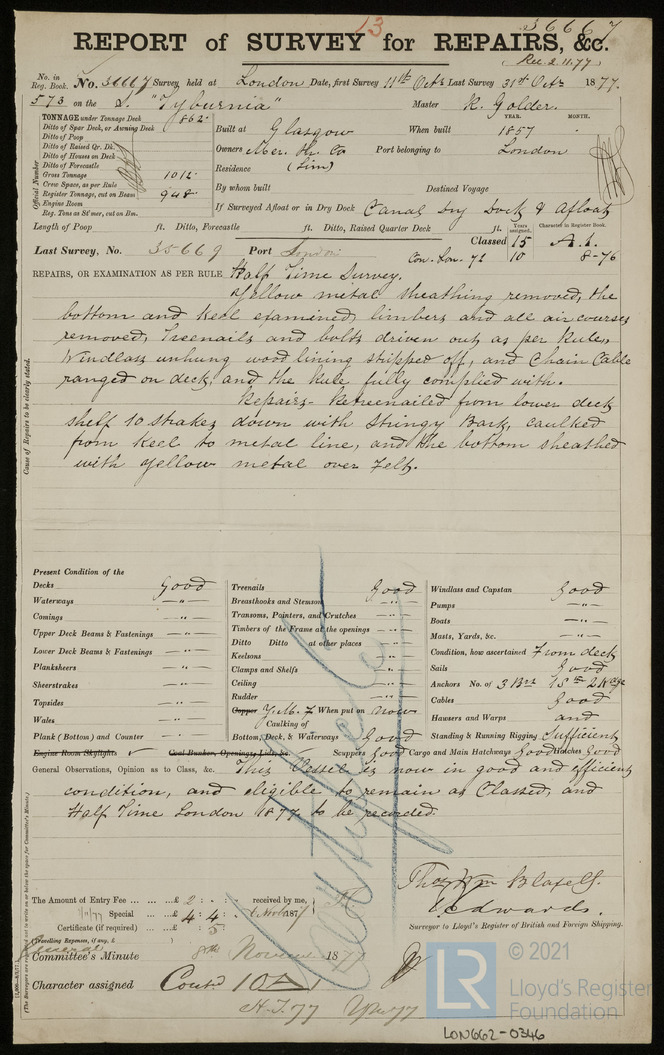 13
36667
REPORT of SURVEY for REPAIRS, &c.
Rec. 2.11.77
No. in Reg. Book. No. 36667 Survey held at London Date, first Survey 11th Octr Last Survey 31st Octr 1877.
573 on the S. "Tyburnia" Master R. Golder.
TONNAGE under Tonnage Deck 862
Ditto of Spar Deck, or Awning Deck
Ditto of Poop
Ditto of Raised Qr. Dk.
Ditto of Houses on Deck
Ditto of Forecastle
Gross Tonnage 1012
Crew Space, as per Rule
Register Tonnage, cut on Beam 948
Engine Room
Reg. Tons as St'mer, cut on Bm.
Official Number
YEAR. MONTH.
Built at Glasgow When built 1857
Owners Mer. Sh. Co Port belonging to London
Residence (Lim)
By whom built Destined Voyage
If Surveyed Afloat or in Dry Dock Canal Dry Dock & Afloat
Length of Poop ft. Ditto, Forecastle ft. Ditto, Raised Quarter Deck ft.
Years assigned. Character in Register Book.
Last Survey, No. 35669 Port London Classed 15 A.1.
Con. Lon. 71 10 8-76
REPAIRS, OR EXAMINATION AS PER RULE Half Time Survey.
Yellow metal sheathing removed, the
bottom and keel examined, limbers and all air courses
removed, Treenails and bolts driven out as per Rule,
Windlass unhung wood lining stripped off, and Chain Cable
ranged on deck, and the Rule fully complied with.
Repairs - Retreenailed from lower deck
shelf 10 strakes down with Stringy Bark, caulked
from Keel to metal line, and the bottom sheathed
with yellow metal over Felt.
Cause of Repairs to be clearly stated.
Present Condition of the
Decks Good
Waterways — " —
Comings — " —
Upper Deck Beams & Fastenings — " —
Lower Deck Beams & Fastenings — " —
Planksheers — " —
Sheerstrakes — " —
Topsides — " —
Wales — " —
Plank (Bottom) and Counter — " —
Engine Room Skylights
Treenails Good
Breasthooks and Stemson — " —
Transoms, Pointers, and Crutches — " —
Timbers of the Frame at the openings — " —
Ditto Ditto at other places — " —
Keelsons — " —
Clamps and Shelfs — " —
Ceiling — " —
Rudder — " —
Copper Y.M. When put on now
Caulking of
Bottom, Deck, & Waterways Good
Coal Bunker, Openings, Lids, &c. Scuppers Good
Windlass and Capstan Good
Pumps — " —
Boats — " —
Masts, Yards, &c. — " —
Condition, how ascertained From deck
Sails Good
Anchors No. of 3 Brs 1 St 2 Kge
Cables Good
Hawsers and Warps and
Standing & Running Rigging Sufficient
Cargo and Main Hatchways Good Hatches Good
General Observations, Opinion as to Class, &c. This Vessel is now in good and efficient
condition, and eligible to remain as Classed, and
Half Time London 1877 to be recorded.
Thos Wm Blaxell.
Edwards.
Surveyor to Lloyd's Register of British and Foreign Shipping.
The Amount of Entry Fee ... £ 2 : - : received by me,
Special ... £ 4 : 4 : 187
Certificate (if required) ... £ : 5
(Travelling Expenses, if any, £ )
Committee's Minute 8th November 1877
Character assigned Contd 10 A 1
H.T. 77
© 2021
LR
Lloyd's Register
Foundation
LON662-0346